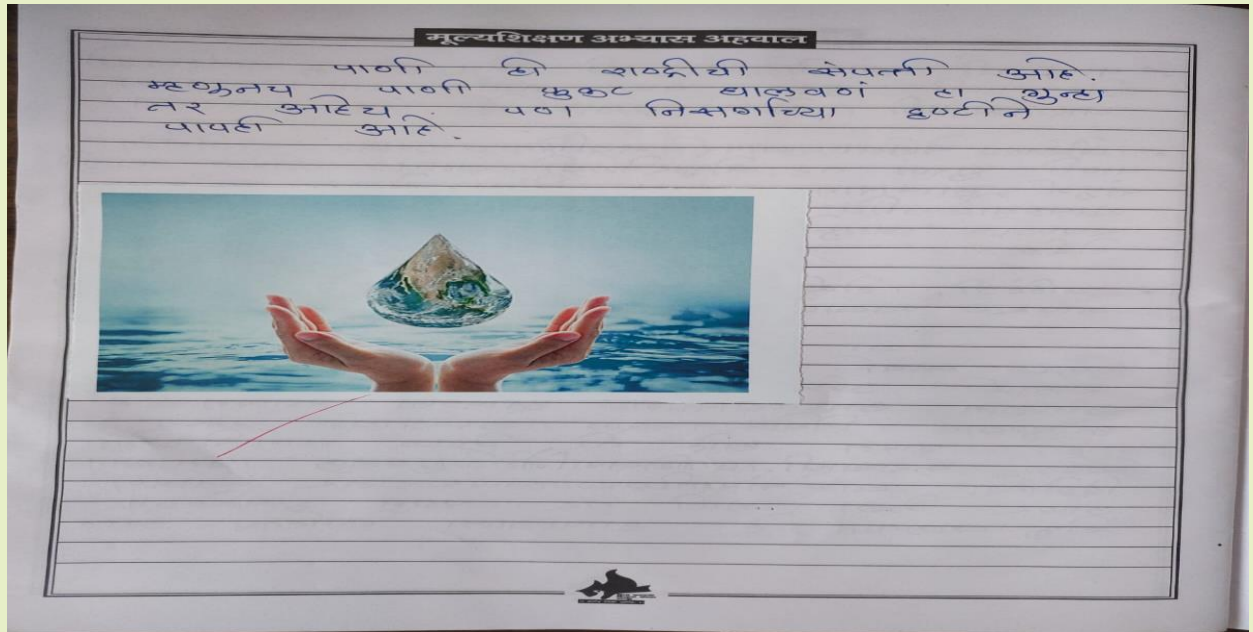 मूल्यशिक्षण अभ्यास अहवाल
पाणी ही राष्ट्रीची संपत्ती आहे.
म्हणूनच पाणी फुकट घालवणं हा गुन्हा
तर आहेच . पण निसर्गाच्या दृष्टीने
पापही आहे.